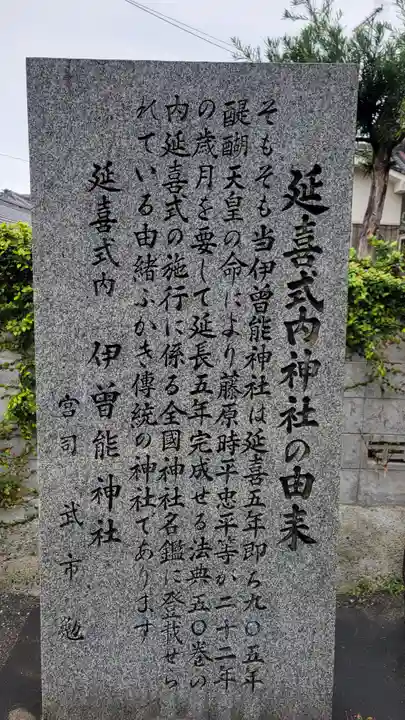 延喜式内神社の由来
そもそも当伊曽能神社は延喜五年即ち九〇五年
醍醐天皇の命により藤原時平忠平等が二十二年
の歳月を要して延長五年完成せる法典五〇巻の
内延喜式の施行に係る全國神社名鑑に登載せら
れている由緒ふかき傳統の神社であります
延喜式内 伊曽能神社
宮司 武市 勉